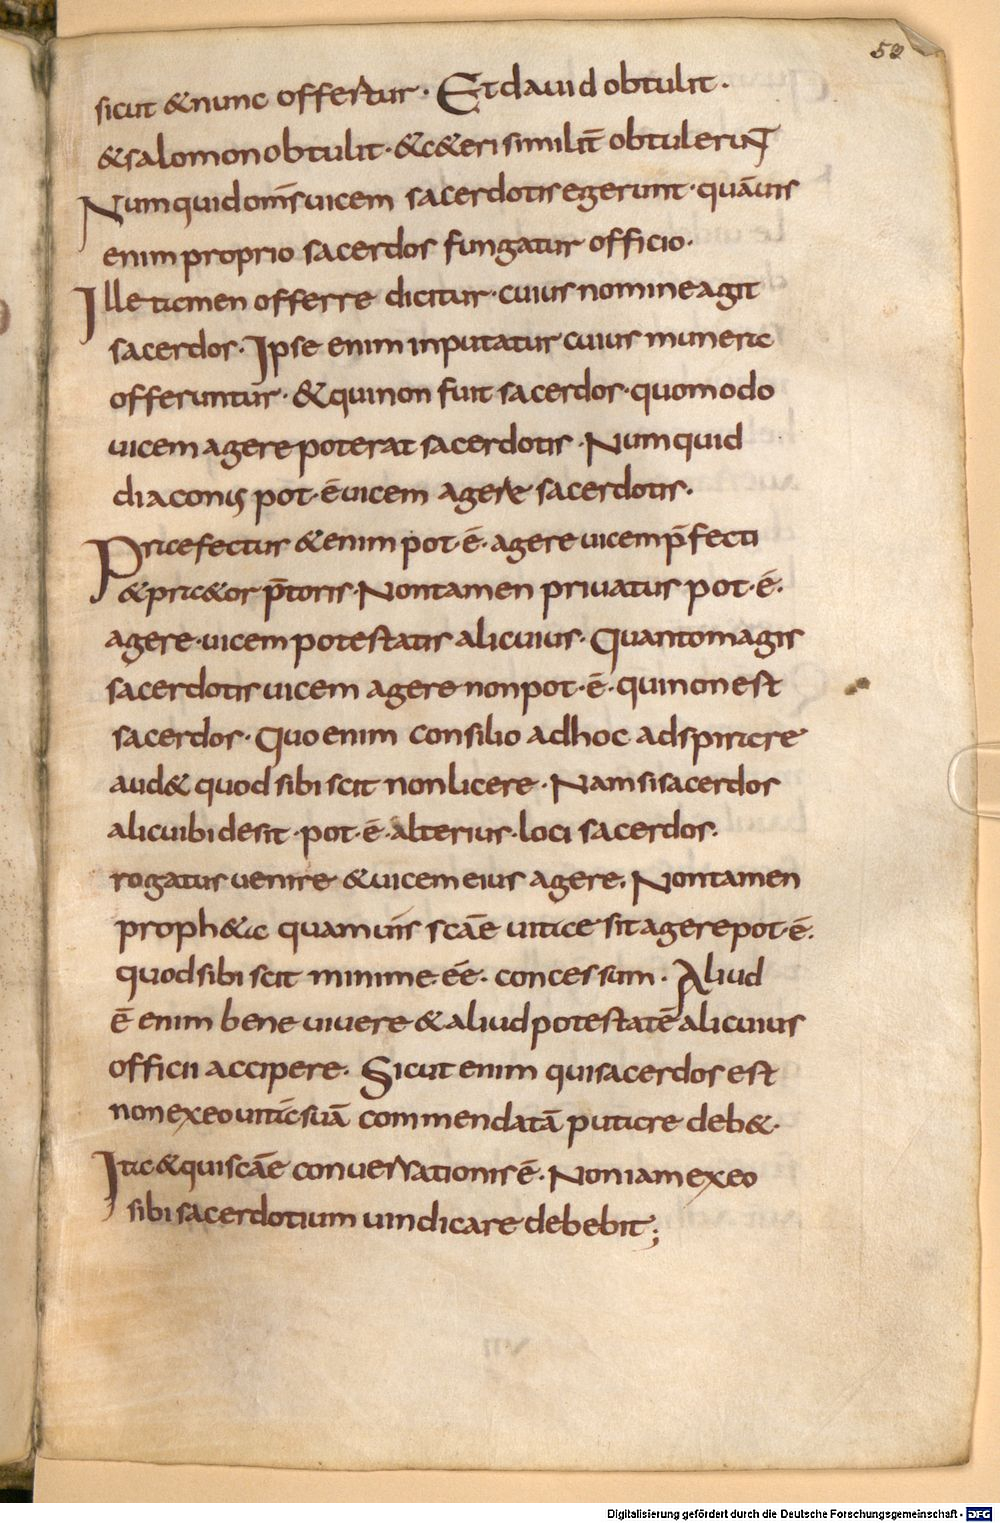 52
sicut & nunc offertur · Et dauid obtulit ·
& salomon obtulit · & c&eri similit̄ obtulerunt
Numquid om̄s uicem sacerdotis egerunt · quāuis
enim proprio sacerdos fungatur officio ·
Ille tamen offerre dicitur · cuius nomine agit
sacerdos · Ipse enim inputatur cuius munera
offeruntur · & qui non fuit sacerdos · quomodo
uicem agere poterat sacerdotis · Numquid
diaconus pot · ē uicem agere sacerdotis ·
Praefectus &enim pot · ē · agere uicem p̄fecti
& pra&or p̄toris · Non tamen priuatus pot · ē ·
agere · uicem potestatis alicuius · Quanto magis
sacerdotis uicem agere non pot · ē · qui non est
sacerdos · Quo enim consilio ad hoc adspirare
aud& quod sibi scit non licere · Nam si sacerdos
alicubi desit · pot · ē · alterius · loci sacerdos ·
rogatus uenire & uicem eius agere · Non tamen
proph&a quamuis scāe uitae sit agere pot · ē ·
quod sibi scit minime · ēe · concessum · Aliud
ē enim bene uiuere & aliud potestatē alicuius
officii accipere · Sicut enim qui sacerdos est
non ex eo uitā suā commendatā putare deb& ·
Ita & qui scāe conuersationis ē · Non iam ex eo
sibi sacerdotium uindicare debebit ;
Digitalisierung gefördert durch die Deutsche Forschungsgemeinschaft - DFG